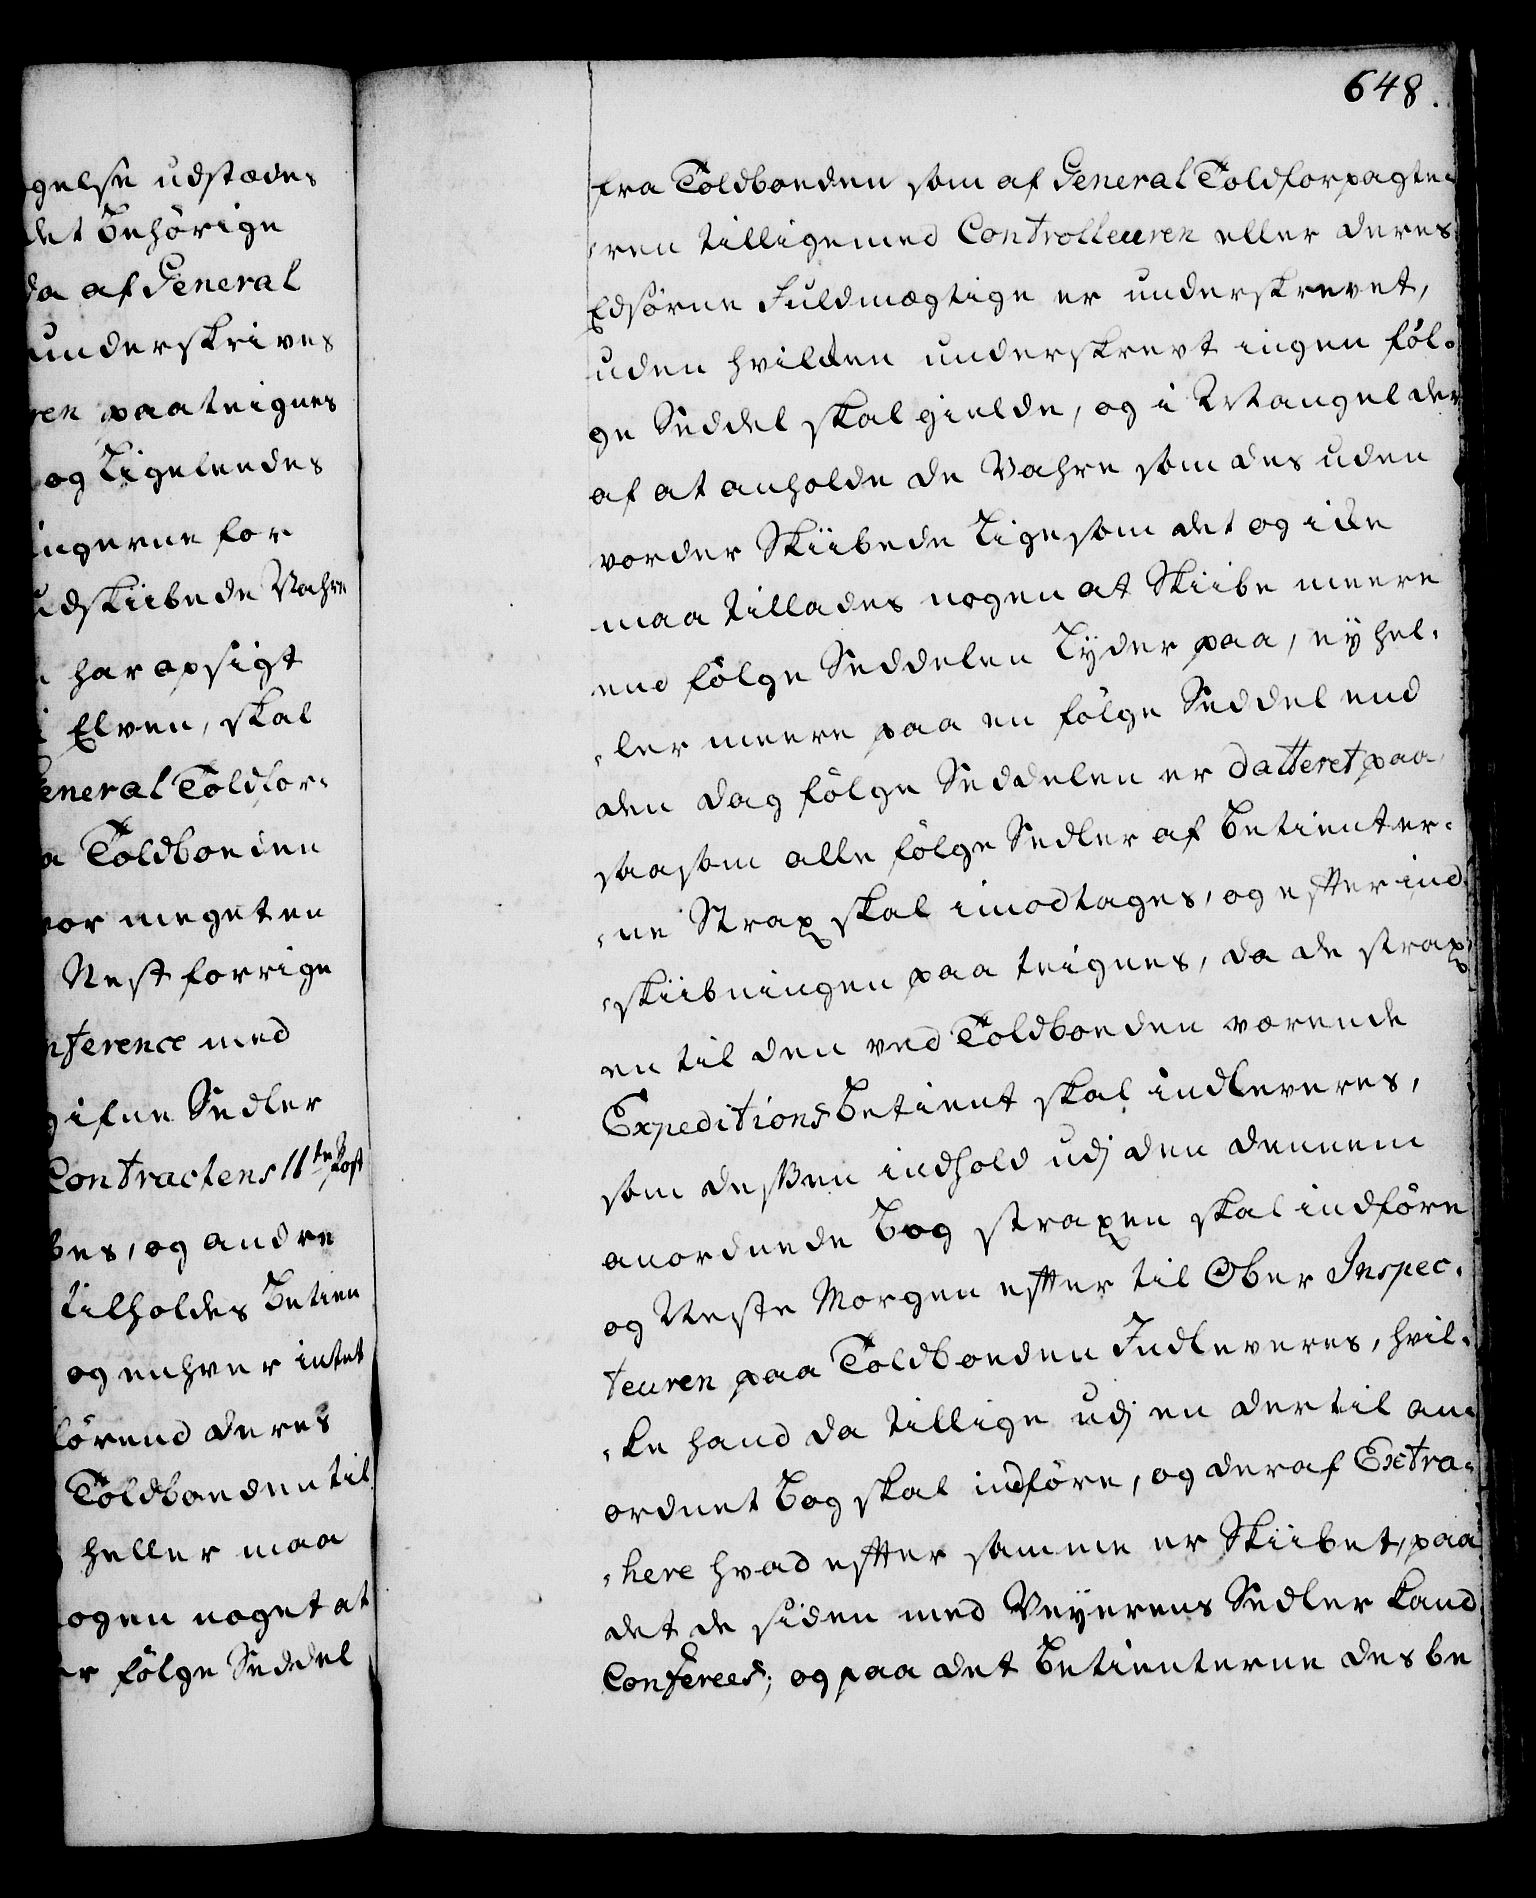 gelse udstædes
det behörige
da af General
underskrives
ren paateignes
og Ligeleedes
ingerne for
udskiibede Vahre
har opsigt
i Elven, skal
General Toldfor-
a Toldboeden
vor meget en
Nest forrige
nference med
gifne Sedler
Contractens 11te Post
bes, og andre
tilholdes betien
og enhver intet
förend deres
Toldboeden til
heller maa
ogen noget at
er fölge Seddel
648.
fra Toldboeden som af General Toldforpagte-
-ren tilligemed Controlleuren eller deres
Edsörne Fuldmægtige er underskrevet,
uden hvilken underskrevt ingen föl-
ge Seddel skal gielde, og i Mangel der
af at anholde de Vahre som des uden
vorder Skiibede Ligesom det og icke
maa tillades nogen at Skiibe meere
end fölge Seddelen Lyder paa, ey hel-
-ler meere paa en fölge Seddel end
den dag fölge Seddelen er datteret paa,
saasom alle fölge Sedler af betienter-
-ne Strax skal imodtages, og efter ind
-skiibningen paa teignes, da de strax
en til den ved Toldboeden værende
Expeditions betient skal indleveres,
som desßen indhold udj den dennem
anordnede bog straxen skal indföre
og Neste Morgen efter til Ober Inspec-
teuren paa Toldboeden Indleveres, hvil-
-ke hand da tillige udj en dertil an-
ordnet bog skal indföre, og deraf Extra-
-here hvad efter samme er Skiibet, paa
det de siden med Veyerens Sedler kand
Conferees; og paa det betienterne des be